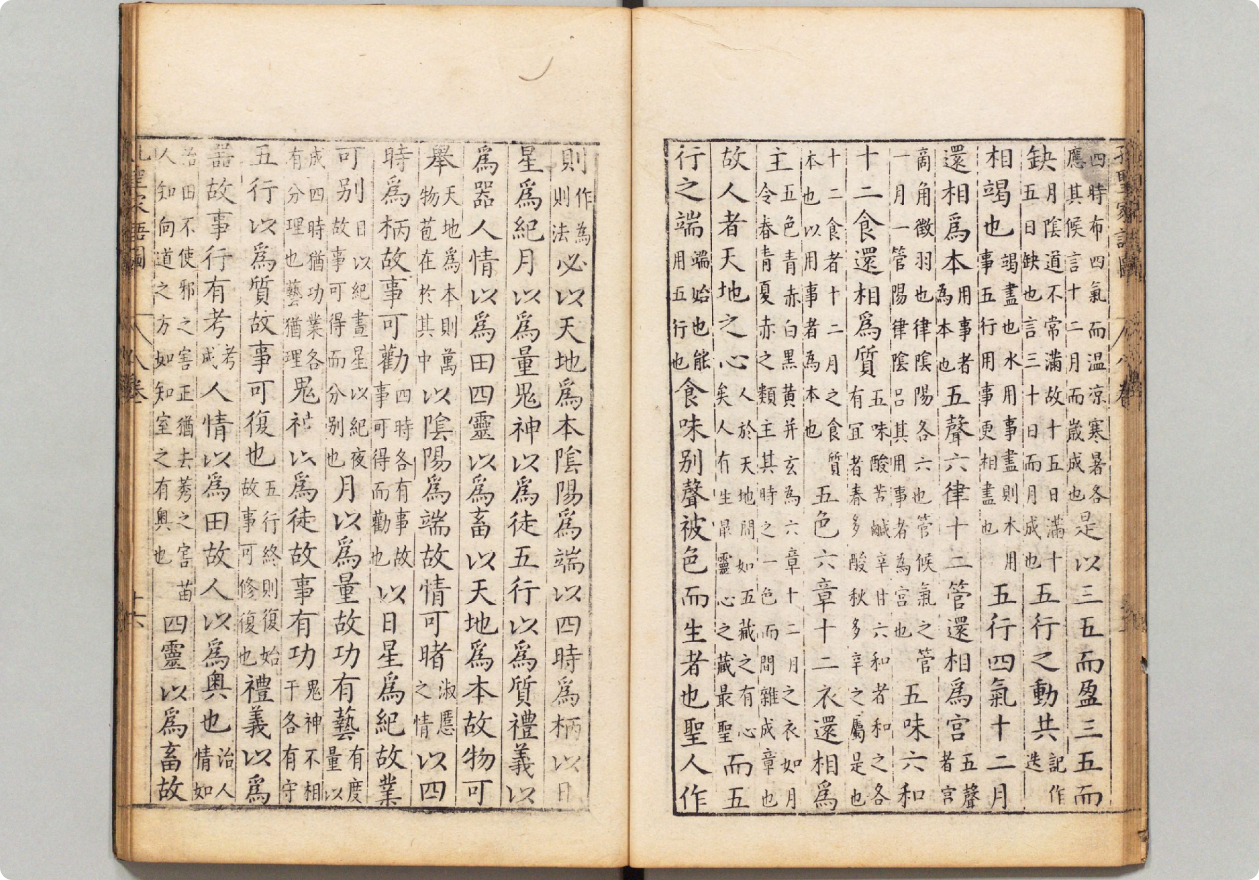 四時布四氣而温凉寒暑各應其候言十二月而歲成也是以三五而盈三五而
缺月陰道不常滿故十五日滿十五日缺也言三十日而月成也五行之動共記作迭
相竭也竭盡也水用事盡則木用事五行用事更相盡也五行四氣十二月
還相爲本用事者為本也五聲六律十二管還相爲宮五聲者宮
商角徵羽也律陰陽各六也管候氣之管一月一管陽律陰呂其用事者為宮也五味六和
十二食還相爲質五味酸苦鹹辛甘六和者和之各有宜者春多酸秋多辛之屬是也
十二食者十二月之食質本也以用事者為本也五色六章十二衣還相爲
主五色青赤白黑黃并玄為六章十二月之衣如月令春青夏赤之類主其時之一色而間雜成章也
故人者天地之心人於天地間如五藏之有心矣人有生最靈心之藏最聖而五
行之端端始也能用五行也食味别聲被色而生者也聖人作
則作為則法必以天地爲本隂陽爲端以四時爲柄以日
星爲紀月以爲量鬼神以爲徒五行以爲質禮義以
爲器人情以爲田四靈以爲畜以天地爲本故物可
舉天地爲本則萬物苞在於其中以隂陽爲端故情可睹淑慝之情以四
時爲柄故事可勸四時各有事故事可得而勸也以日星爲紀故業
可别日以紀晝星以紀夜故事可得而分别也月以爲量故功有藝有度量以
成四時猶功業各有分理也藝猶理鬼神以爲徒故事有功鬼神不相干各有守
五行以爲質故事可復也五行終則復始故事可修復也禮義以爲
噐故事行有考考成人情以爲田故人以爲奥也治人情如
治田不使邪之害正猶去莠之害苗人知向道之方如知室之有奥也四靈以爲畜故
孔聖家語圖 八卷 十六